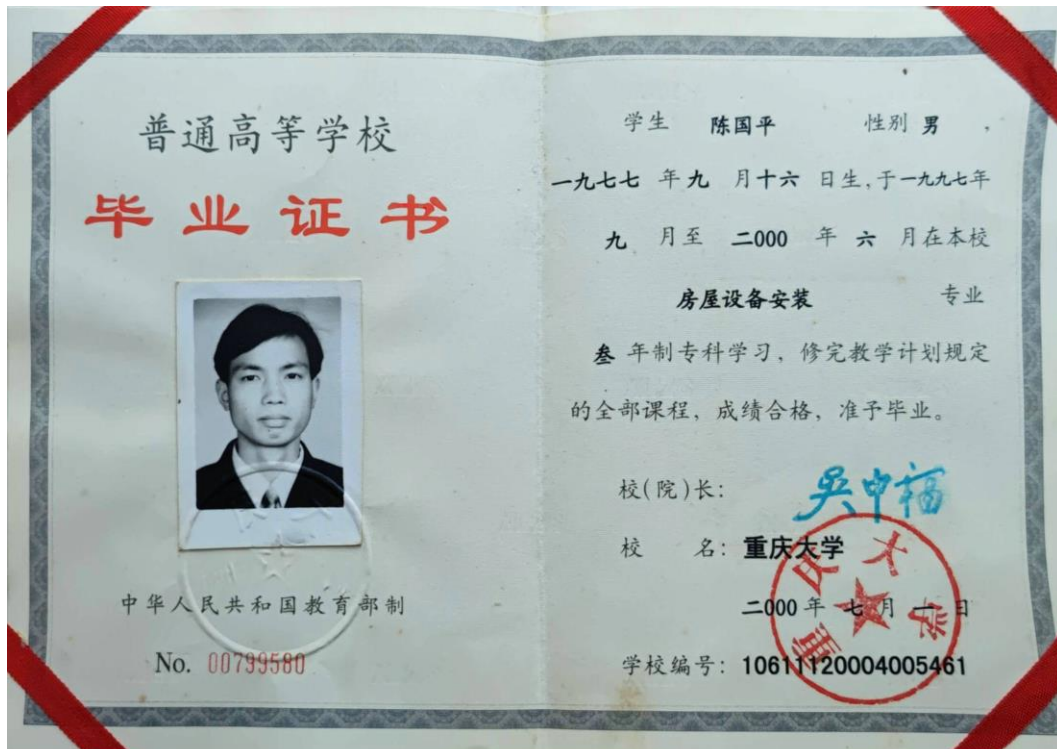 普通高等学校
毕业证书
中华人民共和国教育部制
No. 00799580
学生 陈国平 性别 男，
一九七七 年九 月十六 日生，于一九九七年
九 月至 二000 年 六 月在本校
房屋设备安装 专业
叁 年制专科学习，修完教学计划规定
的全部课程，成绩合格，准予毕业。
校(院)长：吴中福
校 名：重庆大学
二000年 七月 一日
学校编号：10611120004005461
重庆大学